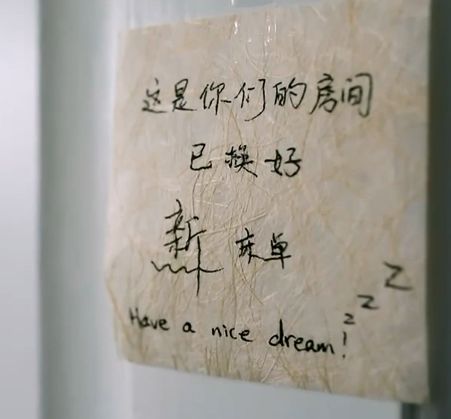 这是你们的房间
已换好
新 床单
Have a nice dream! z z z